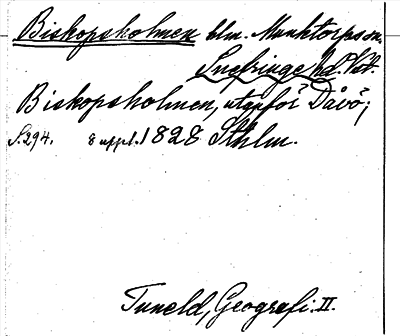 Biskopsholmen blm. Munktorps sn.
Snefringe hd. Vst.
Biskopsholmen, utanför Dåvö;
S. 294. 8 uppl. 1828 Sthlm.
Tuneld, Geografi. II.